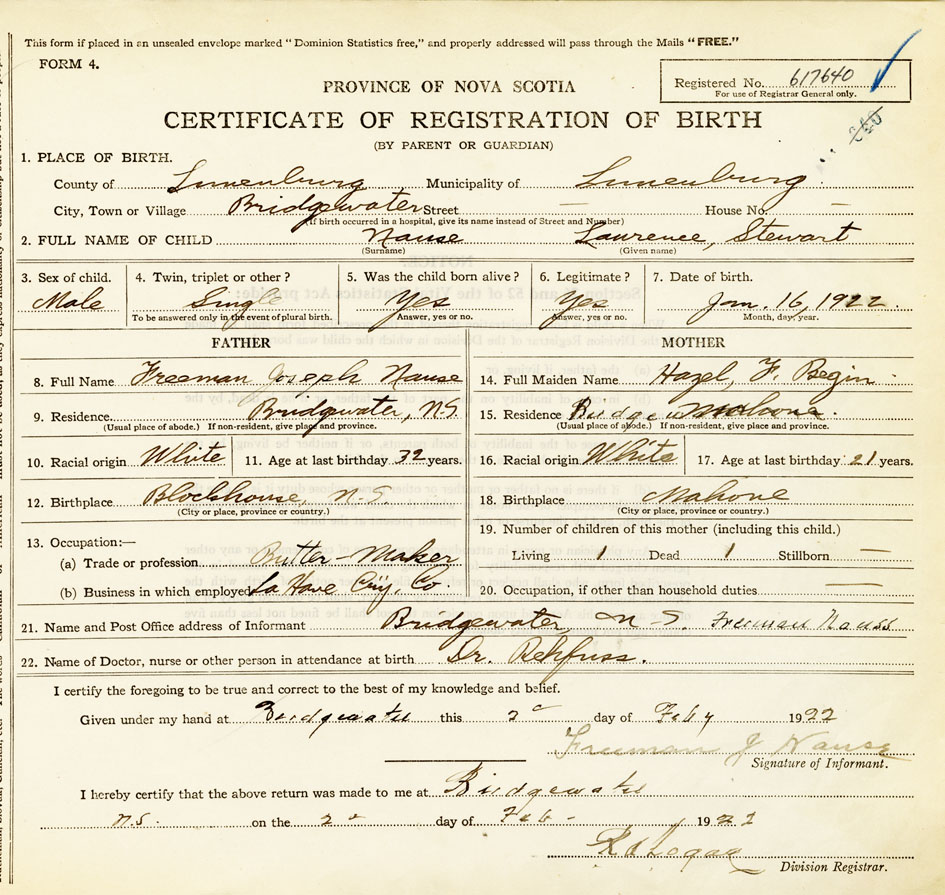 This form if placed in an unsealed envelope marked "Dominion Statistics free," and properly addressed will pass through the Mails "FREE."
FORM 4.
Registered No. 617640
For use of Registrar General only.
PROVINCE OF NOVA SCOTIA
CERTIFICATE OF REGISTRATION OF BIRTH
(BY PARENT OR GUARDIAN)
1. PLACE OF BIRTH.
County of Lunenburg Municipality of Lunenburg
City, Town or Village Bridgewater Street — House No. —
(If birth occurred in a hospital, give its name instead of Street and Number)
2. FULL NAME OF CHILD Nause Laurence, Stewart
(Surname) (Given name)
3. Sex of child. 4. Twin, triplet or other? 5. Was the child born alive? 6. Legitimate? 7. Date of birth.
Male Single Yes Yes Jan. 16, 1922
To be answered only in the event of plural birth. Answer, yes or no. Answer, yes or no. Month, day, year.
FATHER MOTHER
8. Full Name Freeman Joseph Nause 14. Full Maiden Name Hazel, F. Begin
9. Residence. Bridgewater, N.S. 15. Residence Mahone.
(Usual place of abode.) If non-resident, give place and province. (Usual place of abode.) If non-resident, give place and province.
10. Racial origin White 11. Age at last birthday 32 years. 16. Racial origin White 17. Age at last birthday 21 years.
12. Birthplace Blockhouse, N.S. 18. Birthplace Mahone
(City or place, province or country.) (City or place, province or country.)
13. Occupation:— 19. Number of children of this mother (including this child.)
(a) Trade or profession Butter-Maker Living 1 Dead 1 Stillborn —
(b) Business in which employed La Have Co 20. Occupation, if other than household duties —
21. Name and Post Office address of Informant Bridgewater, N.S. Freeman Nauss
22. Name of Doctor, nurse or other person in attendance at birth Dr. Rehfuss.
I certify the foregoing to be true and correct to the best of my knowledge and belief.
Given under my hand at Bridgewater this 2d day of Feby 1922
Freeman J Nause
Signature of Informant.
I hereby certify that the above return was made to me at Bridgewater
N.S. on the 2d day of Feb - 1922
Logan
Division Registrar.